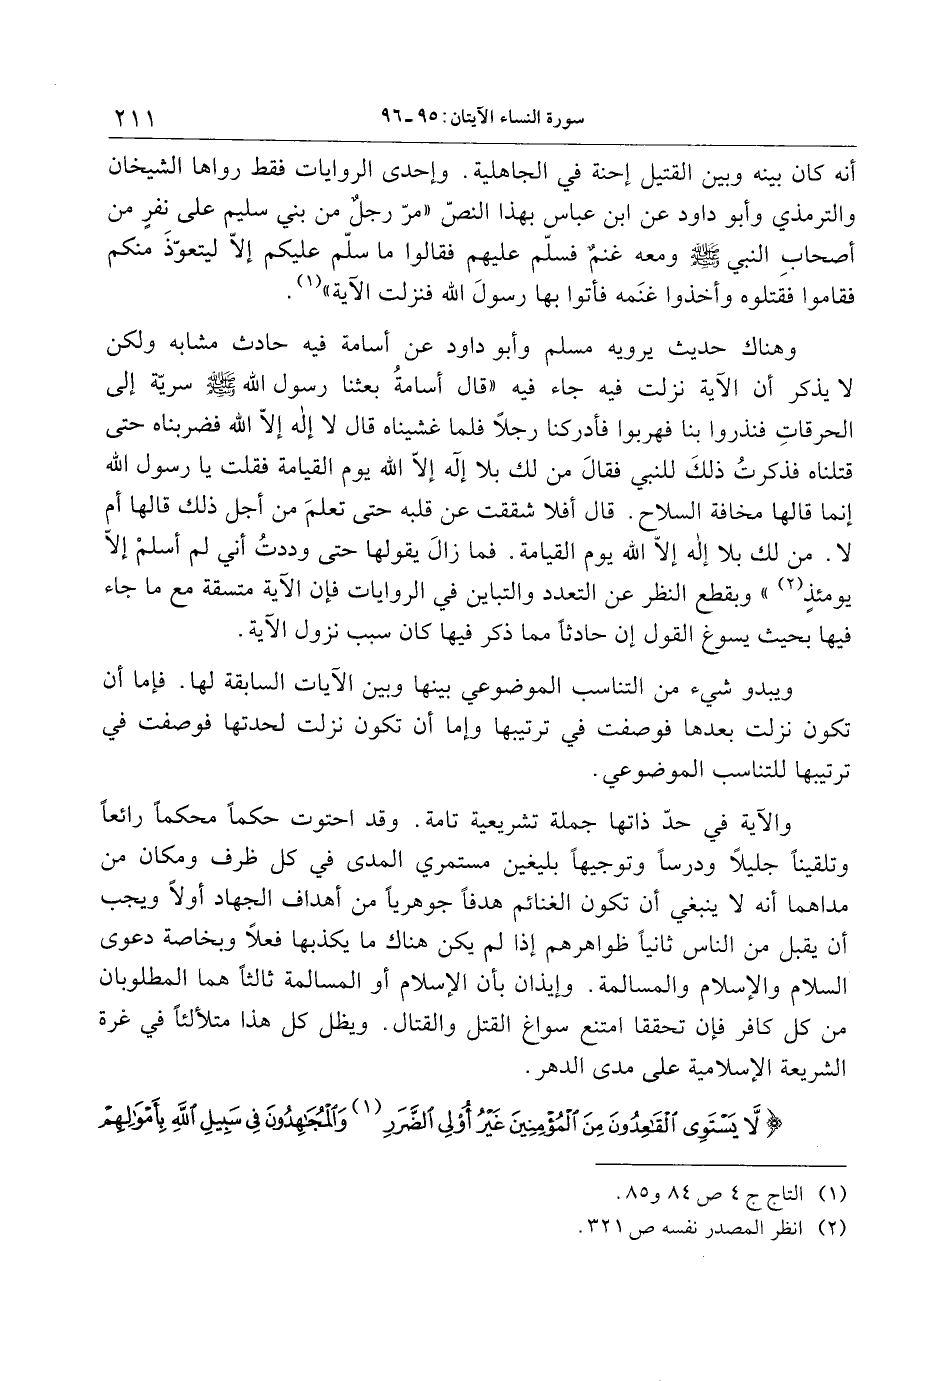 سورة النساء الآيتان: ٩٥ـ٩٦ ٢١١
أنه كان بينه وبين القتيل إحنة في الجاهلية. وإحدى الروايات فقط رواها الشيخان
والترمذي وأبو داود عن ابن عباس بهذا النصّ «مرّ رجلٌ من بني سليم على نفرٍ من
أصحابِ النبي ﷺ ومعه غنمٌ فسلّم عليهم فقالوا ما سلّم عليكم إلاّ ليتعوّذَ منكم
فقاموا فقتلوه وأخذوا غنَمه فأتوا بها رسولَ الله فنزلت الآية»(١).
وهناك حديث يرويه مسلم وأبو داود عن أسامة فيه حادث مشابه ولكن
لا يذكر أن الآية نزلت فيه جاء فيه «قال أسامةُ بعثنا رسول الله ﷺ سريّة إلى
الحرقاتِ فنذروا بنا فهربوا فأدركنا رجلاً فلما غشيناه قال لا إلٰه إلاّ الله فضربناه حتى
قتلناه فذكرتُ ذلكَ للنبي فقالَ من لك بلا إلٰه إلاّ الله يوم القيامة فقلت يا رسول الله
إنما قالها مخافة السلاح. قال أفلا شققت عن قلبه حتى تعلمَ من أجل ذلك قالها أم
لا. من لك بلا إلٰه إلاّ الله يوم القيامة. فما زالَ يقولها حتى وددتُ أني لم أسلمْ إلاّ
يومئذٍ(٢)» وبقطع النظر عن التعدد والتباين في الروايات فإن الآية متسقة مع ما جاء
فيها بحيث يسوغ القول إن حادثاً مما ذكر فيها كان سبب نزول الآية.
ويبدو شيء من التناسب الموضوعي بينها وبين الآيات السابقة لها. فإما أن
تكون نزلت بعدها فوصفت في ترتيبها وإما أن تكون نزلت لحدتها فوصفت في
ترتيبها للتناسب الموضوعي.
والآية في حدّ ذاتها جملة تشريعية تامة. وقد احتوت حكماً محكماً رائعاً
وتلقيناً جليلاً ودرساً وتوجيهاً بليغين مستمري المدى في كل ظرف ومكان من
مداهما أنه لا ينبغي أن تكون الغنائم هدفاً جوهرياً من أهداف الجهاد أولاً ويجب
أن يقبل من الناس ثانياً ظواهرهم إذا لم يكن هناك ما يكذبها فعلاً وبخاصة دعوى
السلام والإسلام والمسالمة. وإيذان بأن الإسلام أو المسالمة ثالثاً هما المطلوبان
من كل كافر فإن تحققا امتنع سواغ القتل والقتال. ويظل كل هذا متلألئاً في غرة
الشريعة الإسلامية على مدى الدهر.
﴿ لَّا يَسْتَوِى ٱلْقَٰعِدُونَ مِنَ ٱلْمُؤْمِنِينَ غَيْرُ أُوْلِى ٱلضَّرَرِ (١) وَٱلْمُجَٰهِدُونَ فِى سَبِيلِ ٱللَّهِ بِأَمْوَٰلِهِمْ
(١) التاج ج ٤ ص ٨٤ و٨٥.
(٢) انظر المصدر نفسه ص ٣٢١.